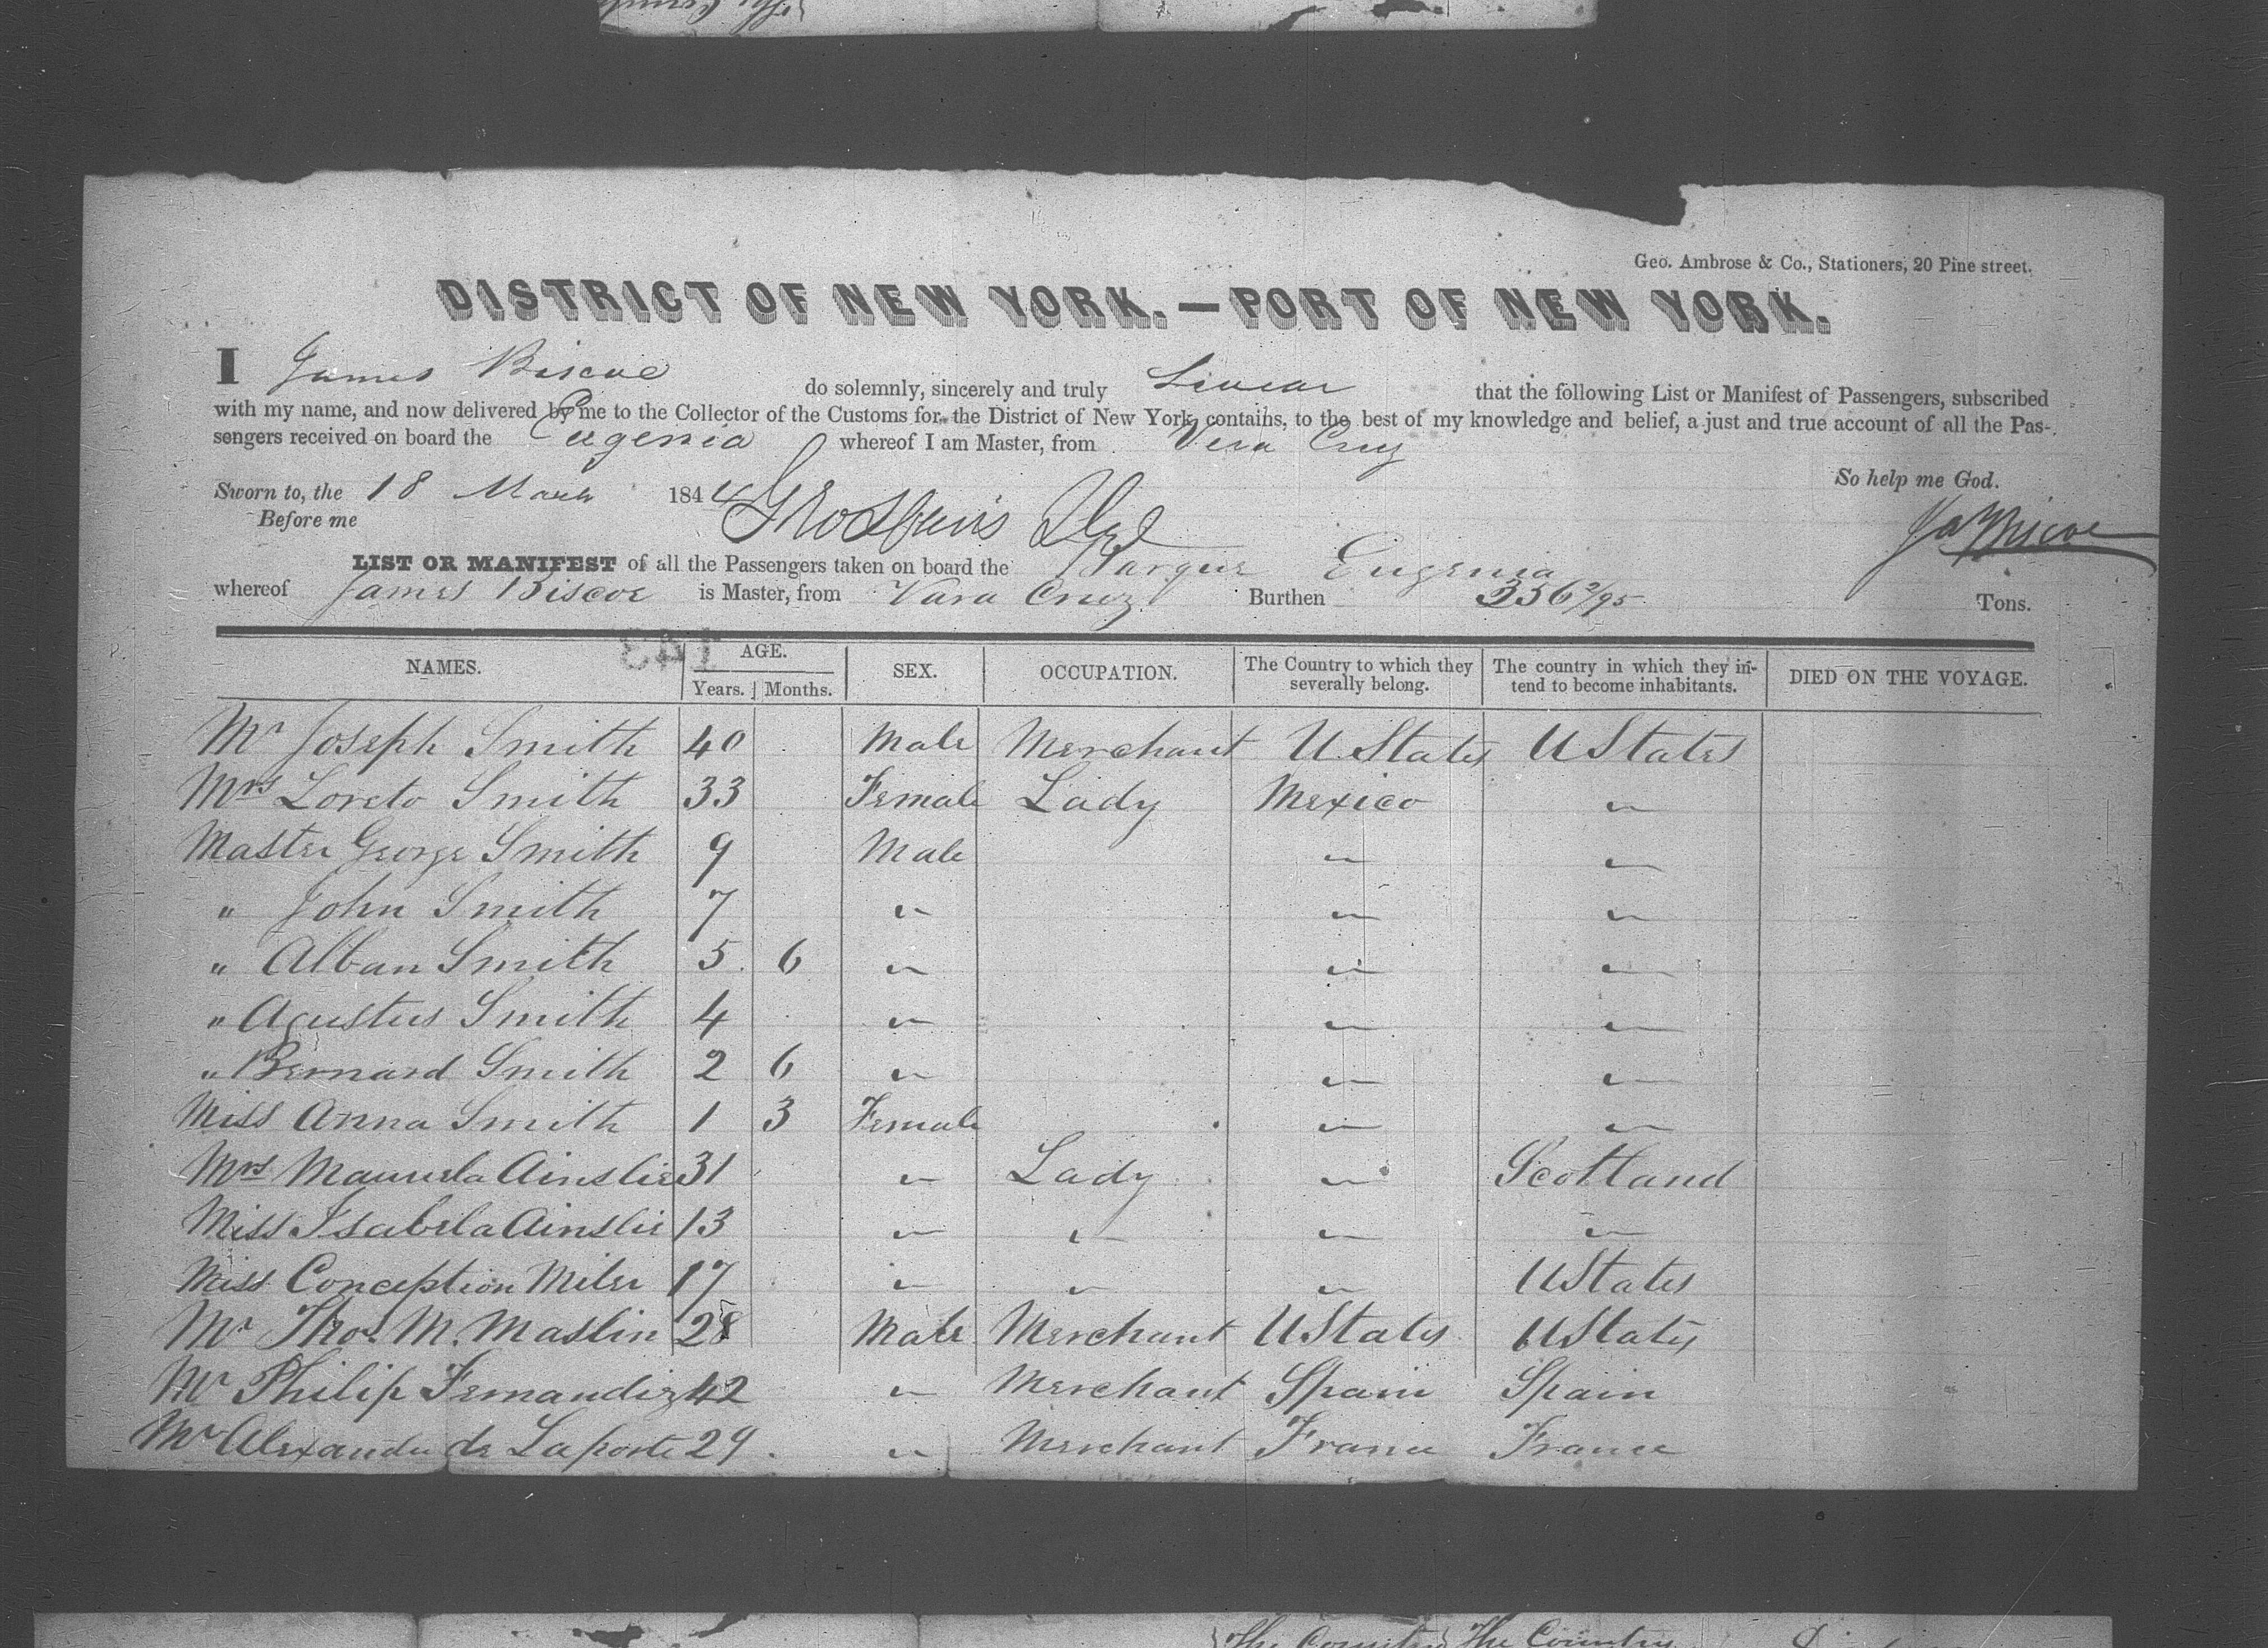 Geo. Ambrose & Co., Stationers, 20 Pine street.
DISTRICT OF NEW YORK.—PORT OF NEW YORK.
I James Biscoe do solemnly, sincerely and truly Swear that the following List or Manifest of Passengers, subscribed
with my name, and now delivered by me to the Collector of the Customs for the District of New York, contains, to the best of my knowledge and belief, a just and true account of all the Pas-
sengers received on board the Eugenia whereof I am Master, from Vera Cruz
So help me God.
Sworn to, the 18 March 1844
Before me
Jas Biscoe
LIST OR MANIFEST of all the Passengers taken on board the Barque Eugenia
whereof James Biscoe is Master, from Vara Cruz Burthen 356 2/95 Tons.
NAMES. AGE. Years. Months. SEX. OCCUPATION. The Country to which they severally belong. The country in which they intend to become inhabitants. DIED ON THE VOYAGE.
Mr Joseph Smith 40 Male Merchant U States U States
Mrs Loreto Smith 33 Female Lady Mexico "
Master George Smith 9 Male " "
" John Smith 7 " " "
" Alban Smith 5 6 " " "
" Agustus Smith 4 " " "
" Bernard Smith 2 6 " " "
Miss Anna Smith 1 3 Female " "
Mrs Manuela Ainslie 31 " Lady " Scotland
Miss Isabela Ainslie 13 " " " "
Miss Conception Miler 17 " " " U States
Mr Thos. M. Maslin 28 Male Merchant U States U States
Mr Philip Fernandiz 42 " Merchant Spain Spain
Mr Alexander de Laporte 29 " Merchant France France